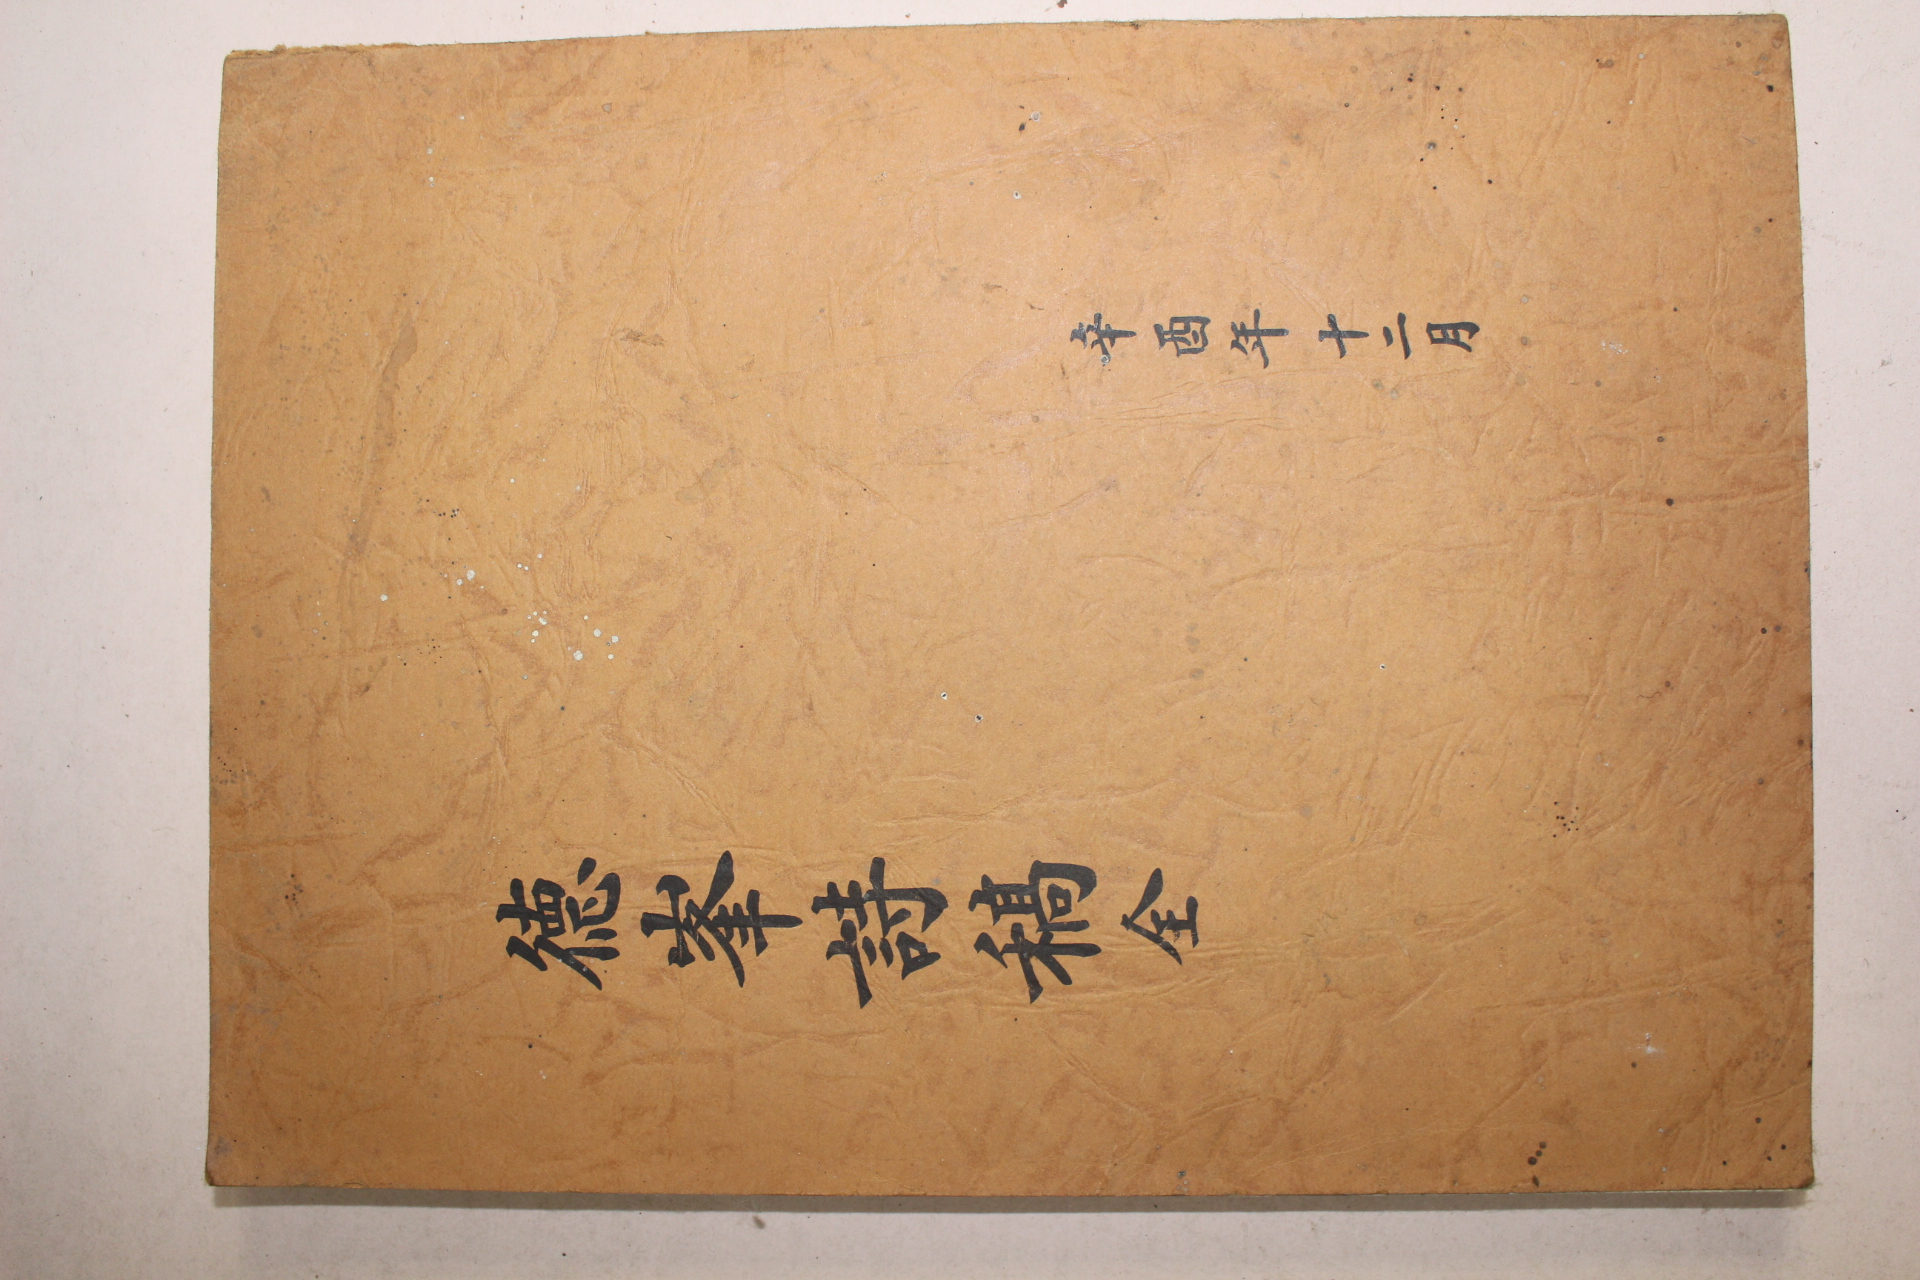 辛酉年十二月
德峯詩稿全